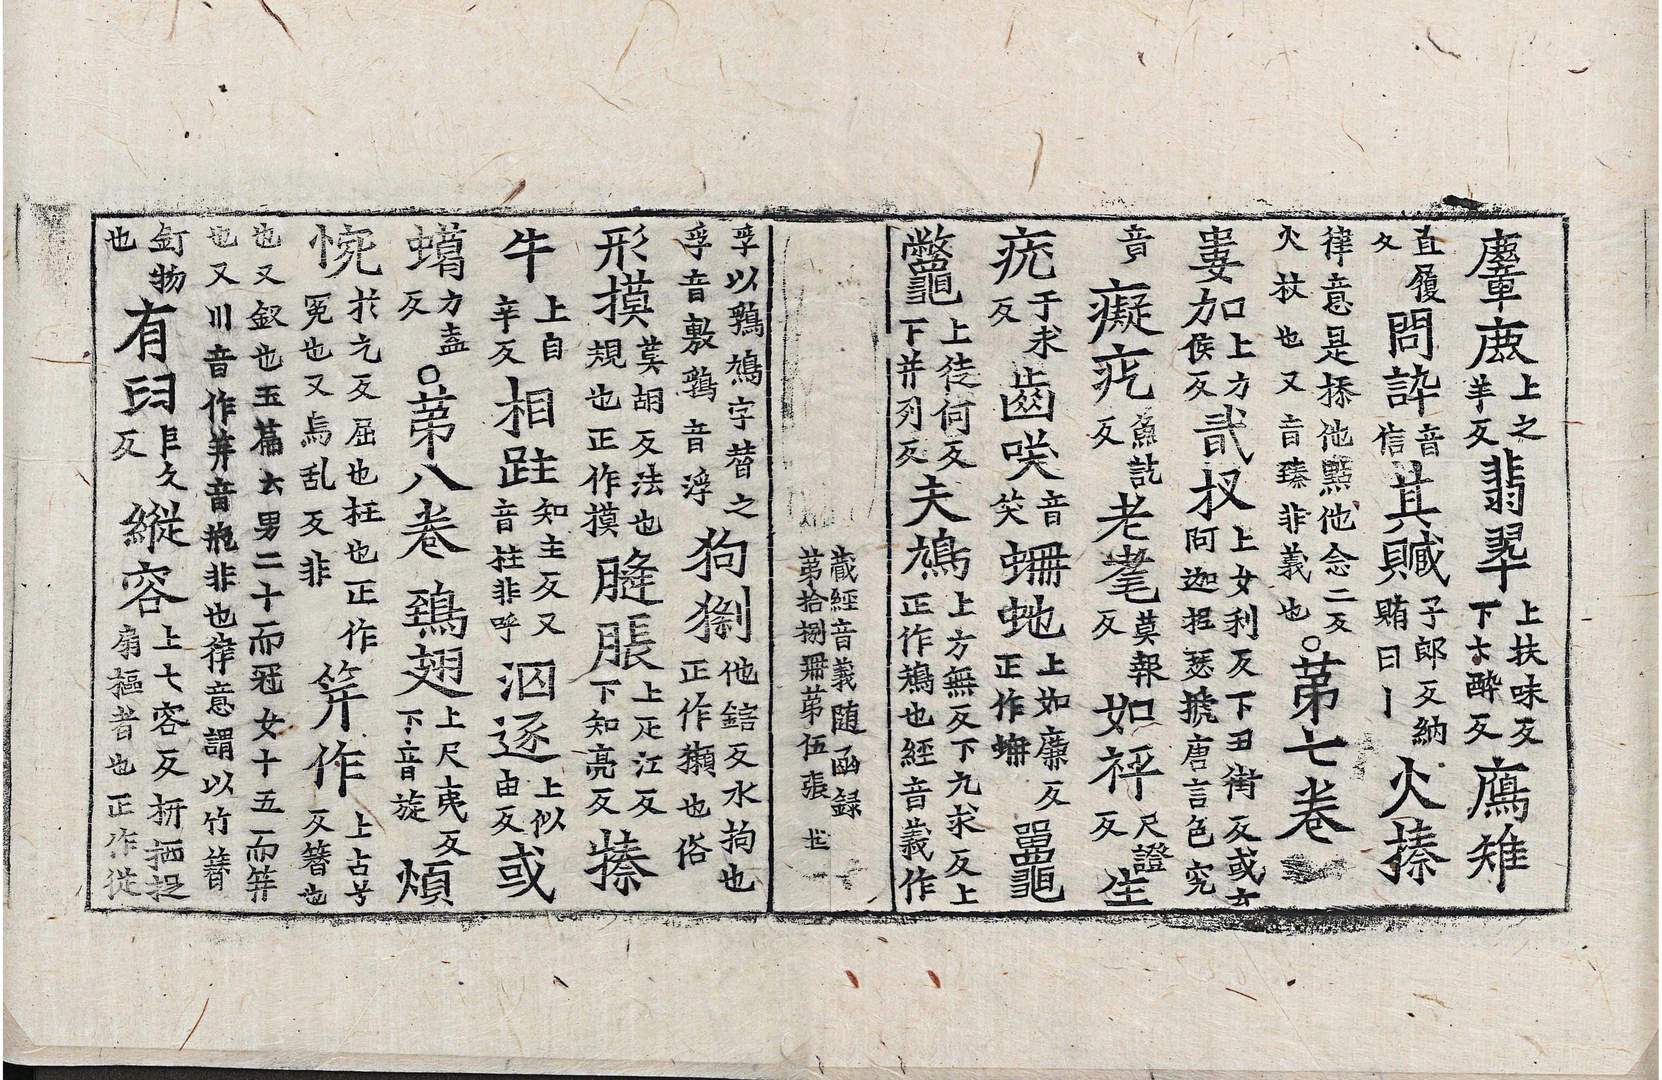 麞鹿上之羊反翡翠上扶味反下七醉反鴈雉
直履反問誶音信其贓子郎反納賄曰丨火㨷
律意是㮇他點他念二反火杖也又音臻非義也○苐七卷
婁加上力侯反貮扠上女利反下丑街反或云阿迦捏瑟搋唐言色究
音癡疙魚訖反老耄莫報反如秤尺證反生
疣于求反齒𡁲音笑蚦虵上如廉反正作蚺鼉龜
鼈上徒何反下并列反夫鳩上方無反下九求反上正作鳺也經音義作
藏經音義随函録苐拾捌冊苐伍張 
孚以鶏鳩字替之狗㹝他鎋反水狗也正作獺也俗
孚音敷鶏音浮
形摸莫胡反法也規也正作摸膖脹上疋江反下知亮反㨷
牛上自辛反相跓知主反又音柱非呼泅逐上似由反或
蠇力盍反○苐八卷鵄翅上尺夷反下音旋煩
惋於元反屈也枉也正作冤也又烏乱反非笄作上古兮反簪也
也又釵也玉篇云男二十而冠女十五而笄
也又川音作笲音𤬪非也律意謂以竹簪
釘物也有臼巨久反縱容上七容反㧳捆捉扇樞者也正作從